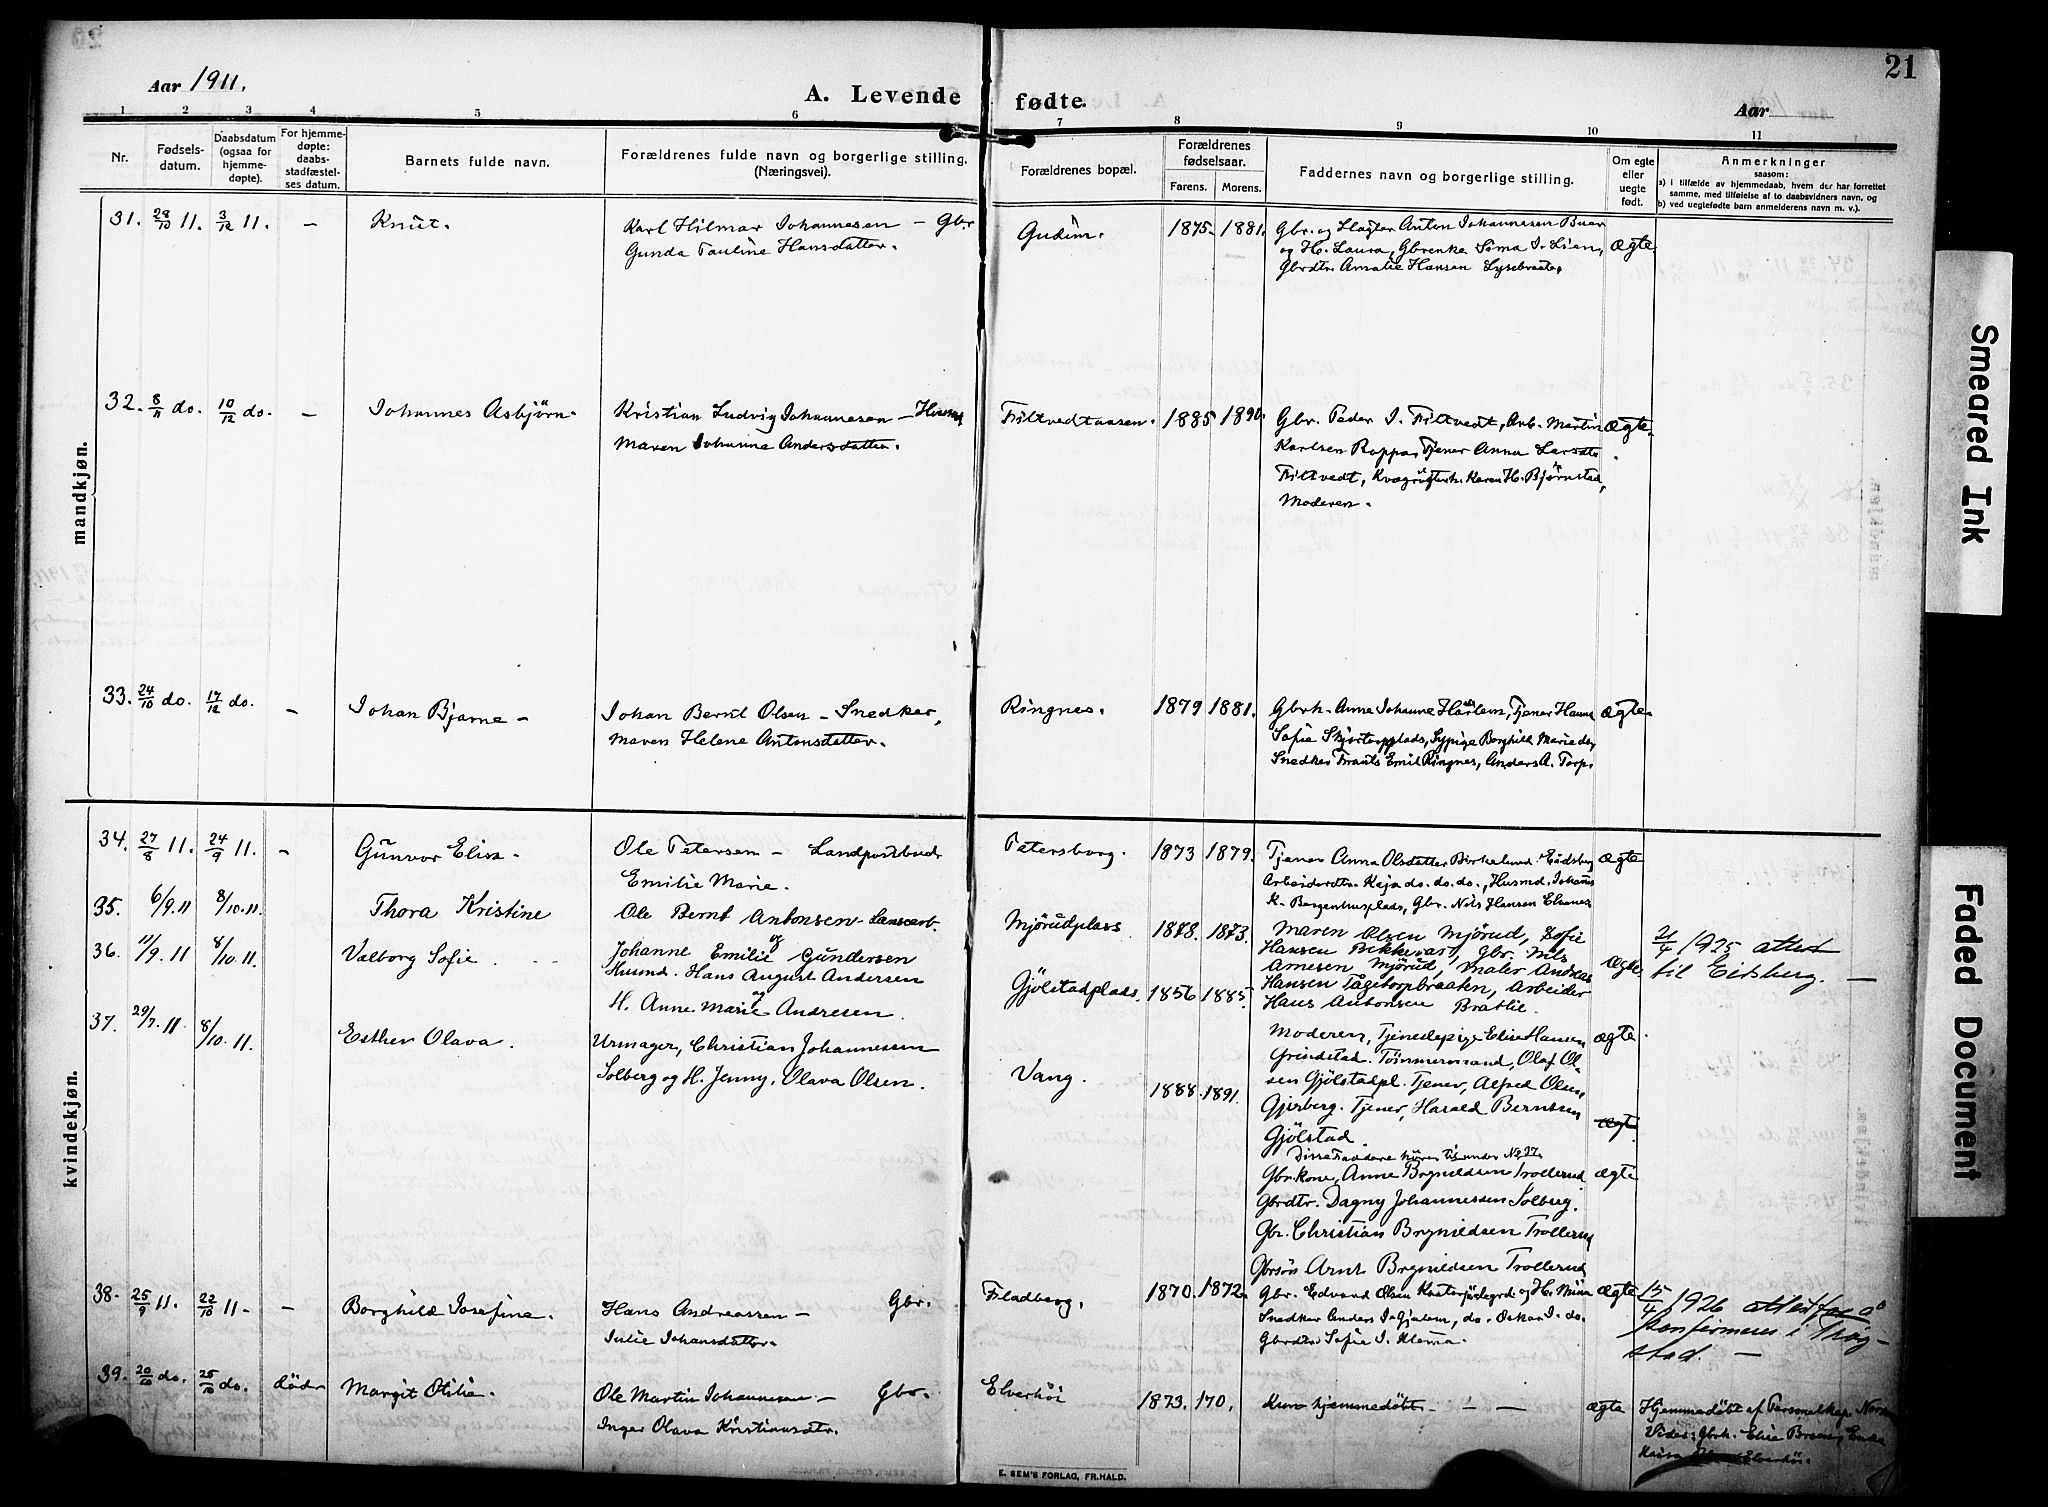 21
Aar 1911.
A. Levende fødte.
Aar
1 2 3 4 5 6 7 8 9 10 11
Nr.
Fødsels-
datum.
Daabsdatum
(ogsaa for
hjemme-
døpte).
For hjemme-
døpte:
daabs-
stadfæstel-
ses datum.
Barnets fulde navn.
Forældrenes fulde navn og borgerlige stilling.
(Næringsvei).
Forældrenes bopæl.
Forældrenes
fødselsaar.
Farens. Morens.
Faddernes navn og borgerlige stilling.
Om egte
eller
uegte
født.
Anmerkninger
saasom:
a) i tilfælde av hjemmedaab, hvem der har forrettet
samme, med tilføielse af to daabsvidners navn, og
b) ved uegtefødte barn anmelderens navn m. v.).
mandkjøn.
31. 28/10 11. 3/12 11. – Knut. Karl Hilmar Johannesen – Gbr. Gudim. 1875. 1881. Gbr. og Slagter Anton Johannesen Buer ægte.
Gunda Pauline Hansdatter. og H. Laura, Gbrenke Sima J. Lien,
Gbrdtr. Amalie Hansen Lysebraate.
32. 8/11 do. 10/12 do. – Johannes Asbjørn. Kristian Ludvig Johannesen – Husmd Filtvedtaasen. 1885 1890. Gbr. Peder J. Filtvedt, Arb. Martin ægte.
Maren Johanne Andersdatter. Karlsen Rappa, Tjener Anna Larsdtr
Filtvedt, Karen H. Bjørnstad,
Moderen.
33. 24/10 do. 17/12 do. – Johan Bjarne – Johan Bernt Olsen – Snedker, Ringnes. 1879 1881. Gbrk. Anne Johanne Harlem, Tjener Hanna ægte
Maren Helene Antonsdatter. Sofie Skjortorpplads, Sypige Borghild Marie do,
Snedker Frants Emil Ringnes, Anders A. Torp.
kvindekjøn.
34. 27/8 11. 24/9 11. – Gunvor Elise – Ole Petersen – Landpostbud Petersborg. 1873 1879. Tjener Anna Olsdatter Birkelund Eidsberg ægte
Emilie Marie. Arbeiderdtr. Kaja do. do. do., Husmd. Johans
K. Bergenhusplads, Gbr. Nils Hansen
35. 6/9.11 8/10.11. Thora Kristine Ole Bernt Antonsen Mjørudplass 1878. 1873. Maren Olsen Mjørud, Sofie ægte
og
Johanne Emilie Gundersen Hansen Bikkevast, Gbr. Nils
Arnesen Mjørud, Maler Andreas
36. 11/9.11 8/10.11. Valborg Sofie. Husmd. Hans August Andersen Gjølstadplads. 1856 1885. Hansen Tagetorpbraaten, Arbeider
og
H. Anne Marie Andresen. Hans Antonsen Bratlie.
21/4 1925 attest
til Eidsberg. –
37. 29/7.11 8/10.11. Esther Olava. Urmager, Christian Johannessen Vang. 1888. 1891. Moderen, Tjenestepige Elise Hansen ægte
Solberg og H. Jenny, Olava Olsen. Grindstad. Tømmermand, Olaf Ol-
sen Gjølstadpl. Tjener, Alfred Olsen,
Gjerberg. Tjener, Harald Berntsen ægte.
Gjølstad.
Disse Faddere hører til under No 37.
Gbrkone, Anne Brynildsen Trollerud ægte
Gbrdtr. Dagny Johannessen Solberg.
Gbr. Christian Brynildsen Trollerud
Gbrsøn Arnt Brynildsen Trollerud
38. 25/9 11. 22/10 11 – – Borghild Josefine. Hans Andreassen – Gbr. Fladberg. 1870. 1872. Gbr. Edvard Olsen og H. Mina ægte
Julie Johansdatter. Snedker Anders J. Gjølem, do. Oskar J. do.
Gbrdtr. Sofie J. Klemma.
15/4 1926 attest for å
konfirmeres i Trøg-
stad. –
39. 20/10 do. 25/10 do. død Margit Otilie. Ole Martin Johannesen – Gbr. Elverhøi 1873. 170. Kun hjemmedøbt – – – ægte Hjemmedøbt af
Inger Olava Kristiansdtr. Vidner: Gbrk. Elise
Elverhøi.
E. SEM'S FORLAG, FR.HALD.
Smeared Ink
Faded Document